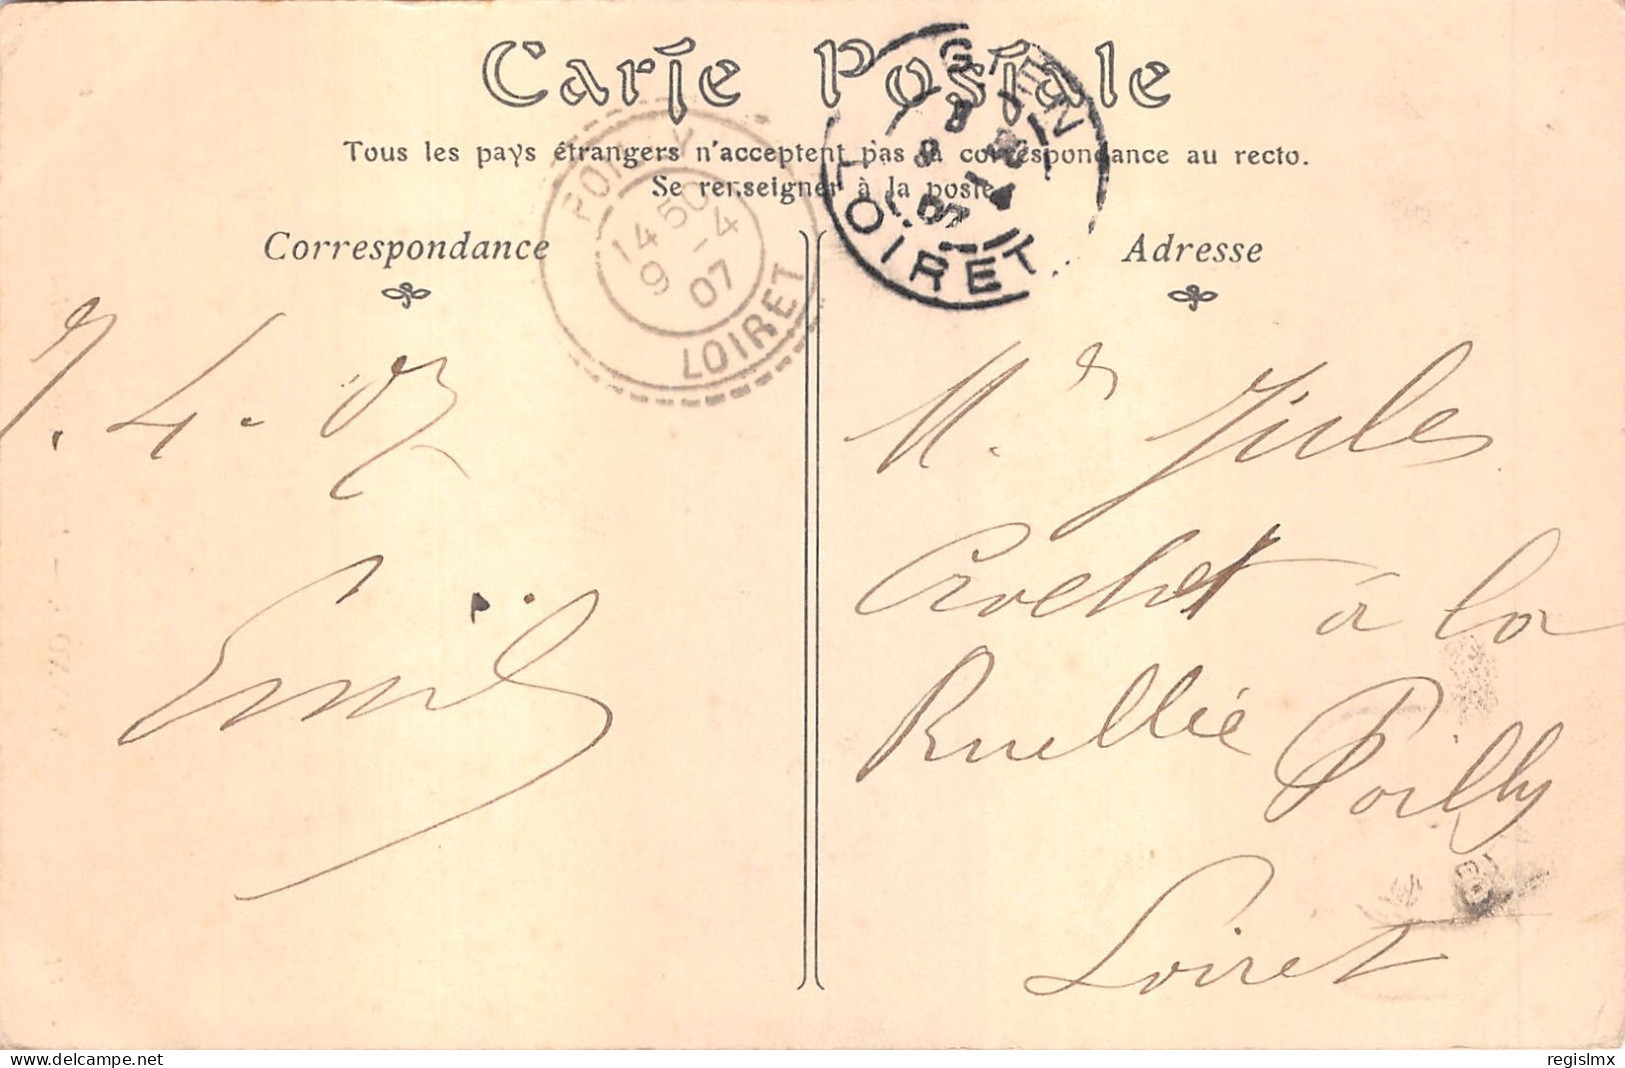 Carte Postale
Tous les pays étrangers n'acceptent pas la correspondance au recto.
Se renseigner à la poste.
Correspondance
Adresse
POILLY
14 50
9 -4
07
LOIRET
GIEN
8 - 4
07
LOIRET
7. 4 - 07
Emile
Mr Jules
Crochet à la
Ruellée Poilly
Loiret
regislmx